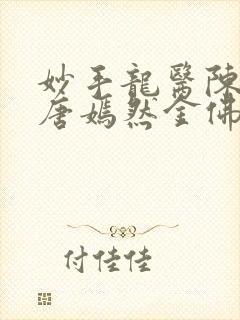 妙手龍醫陳
唐嫣然全佛
付佳佳